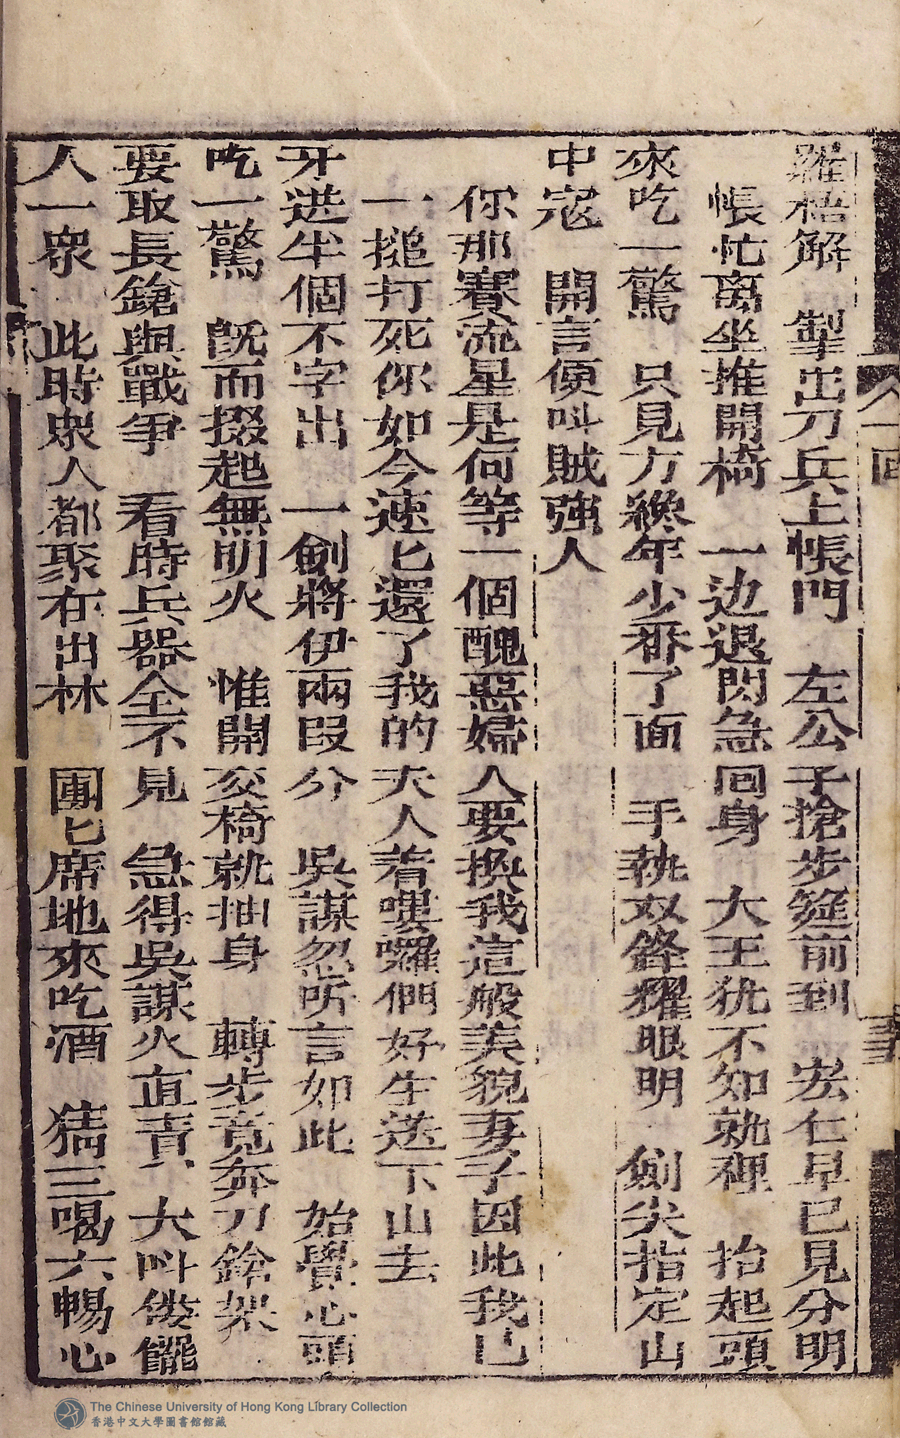 羅梧解　掣出刀兵上帳門　左公子搶步筵前到　宏仁早已見分明
帳忙离坐推開椅　一边退閃急回身　大王犹不知就裡　抬起頭
來吃一驚　只見方纔年少番了面　手執双鋒耀眼明　劍尖指定山
中寇　開言便叫賊強人
你那賽流星是何等一個醜惡婦人要換我這般美貌妻子因此我已
一搥打死你如今速匕還了我的夫人着嘍囉們好生送下山去
牙迸半個不字出　一劍將伊兩段分　吳謀忽听言如此　始覺心頭
吃一驚　既而掇起無明火　惟開交椅就抽身　轉步竟奔刀鎗架
要取長鎗與戰爭　看時兵器全不見　急得吳謀火直賁　大叫僂儸
人一衆　此時衆人都聚在出林　團匕席地來吃酒　猜三喝六暢心
一回
The Chinese University of Hong Kong Library Collection
香港中文大學圖書館館藏